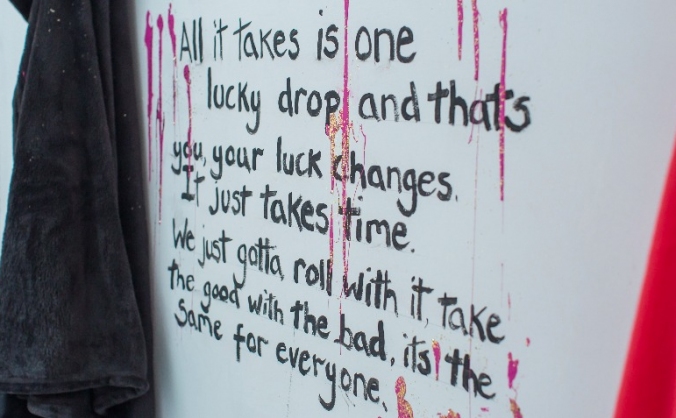 All it takes is one
lucky drop and that's
you, your luck changes.
It just takes time.
We just gotta roll with it, take
the good with the bad, its the
same for everyone.